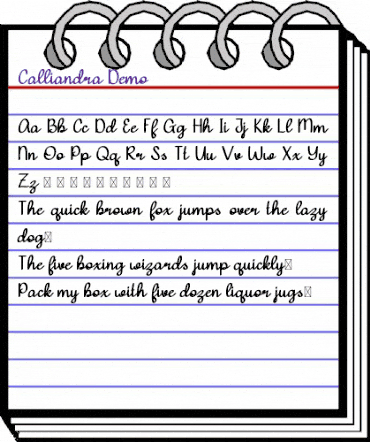 Calliandra Demo
Aa Bb Cc Dd Ee Ff Gg Hh Ii Jj Kk Ll Mm
Nn Oo Pp Qq Rr Ss Tt Uu Vv Ww Xx Yy
Zz □ □ □ □ □ □ □ □ □ □
The quick brown fox jumps over the lazy
dog□
The five boxing wizards jump quickly□
Pack my box with five dozen liquor jugs□